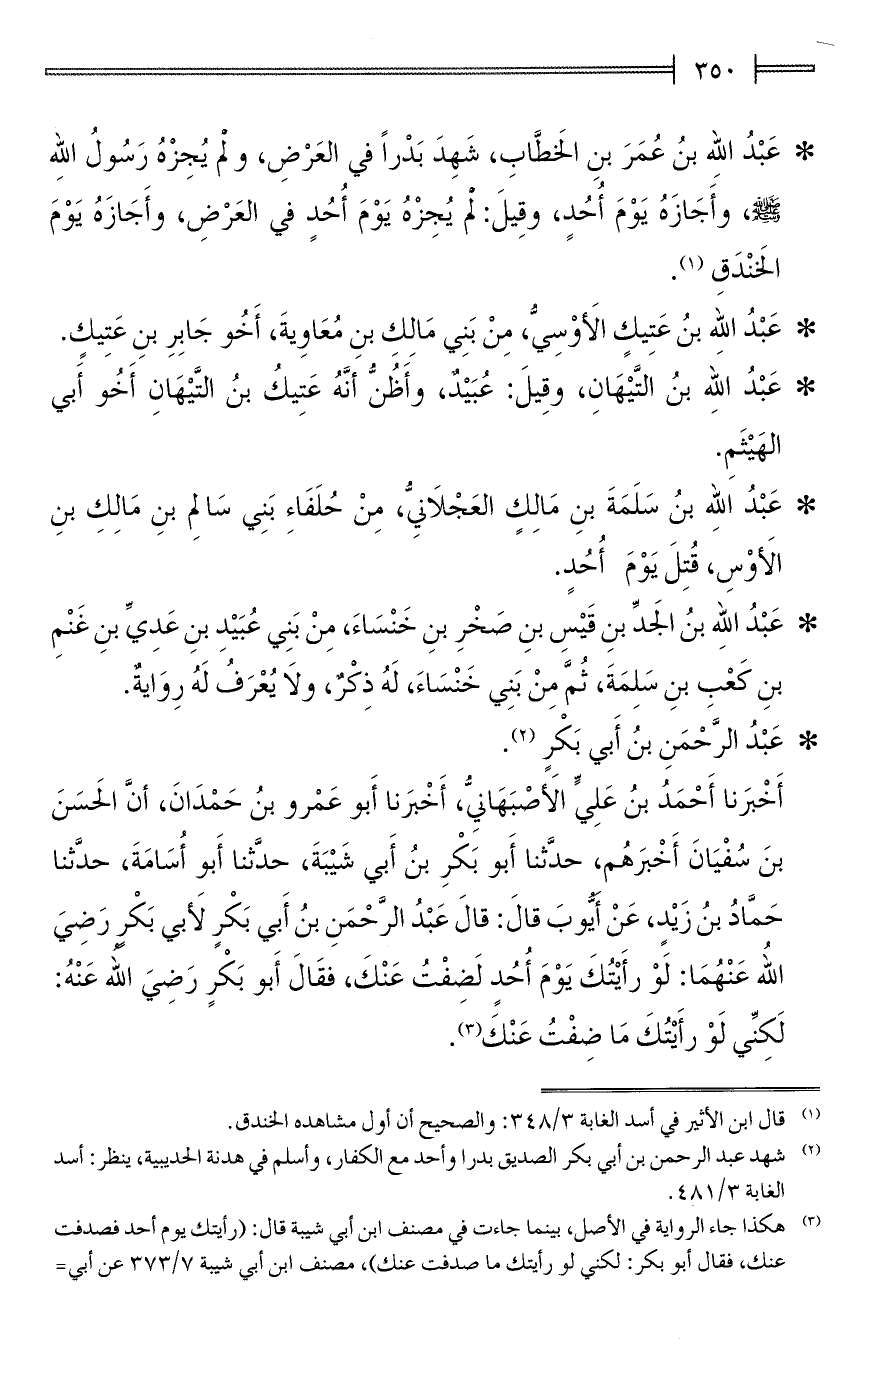 ٣٥٠
* عَبْدُ اللهِ بنُ عُمَرَ بنِ الخَطَّابِ، شَهِدَ بَدْراً في العَرْضِ، ولَمْ يُجِزْهُ رَسُولُ اللهِ
ﷺ، وأَجَازَهُ يَوْمَ أُحُدٍ، وقِيلَ: لَمْ يُجِزْهُ يَوْمَ أُحُدٍ في العَرْضِ، وأَجَازَهُ يَوْمَ
الخَنْدَقِ (١).
* عَبْدُ اللهِ بنُ عَتِيكٍ الأَوْسِيُّ، مِنْ بَنِي مَالِكِ بنِ مُعَاوِيةَ، أَخُو جَابِرِ بنِ عَتِيكٍ.
* عَبْدُ اللهِ بنُ التَّيْهَانِ، وقِيلَ: عُبَيْدٌ، وأَظُنُّ أنَّهُ عَتِيكُ بنُ التَّيْهَانِ أَخُو أَبي
الهَيْثَمِ.
* عَبْدُ اللهِ بنُ سَلَمَةَ بنِ مَالِكٍ العَجْلَانيُّ، مِنْ حُلَفَاءِ بَنِي سَالِمِ بنِ مَالِكِ بنِ
الأَوْسِ، قُتِلَ يَوْمَ أُحُدٍ.
* عَبْدُ اللهِ بنُ الجَدِّ بنِ قَيْسِ بنِ صَخْرِ بنِ خَنْسَاءَ، مِنْ بَنِي عُبَيْدِ بنِ عَدِيِّ بنِ غَنْمِ
بنِ كَعْبِ بنِ سَلِمَةَ، ثُمَّ مِنْ بَنِي خَنْسَاءَ، لَهُ ذِكْرٌ، ولَا يُعْرَفُ لَهُ رِوَايةٌ.
* عَبْدُ الرَّحْمَنِ بنُ أَبي بَكْرٍ (٢).
أَخْبَرَنا أَحْمَدُ بنُ عَلِيٍّ الأَصْبَهَانيُّ، أَخْبَرَنا أبو عَمْرو بنُ حَمْدَانَ، أنَّ الحَسَنَ
بنَ سُفْيَانَ أَخْبَرَهُم، حدَّثنا أبو بَكْرِ بنُ أَبي شَيْبَةَ، حدَّثنا أبو أُسَامَةَ، حدَّثنا
حَمَّادُ بنُ زَيْدٍ، عَنْ أَيُّوبَ قالَ: قالَ عَبْدُ الرَّحْمَنِ بنُ أَبي بَكْرٍ لأَبي بَكْرٍ رَضِيَ
اللهُ عَنْهُمَا: لَوْ رأَيْتُكَ يَوْمَ أُحُدٍ لَضِفْتُ عَنْكَ، فقَالَ أبو بَكْرٍ رَضِيَ اللهُ عَنْهُ:
لَكِنِّي لَوْ رأَيْتُكَ مَا ضِفْتُ عَنْكَ(٣).
(١) قال ابن الأثير في أسد الغابة ٣٤٨/٣: والصحيح أن أول مشاهده الخندق.
(٢) شهد عبد الرحمن بن أبي بكر الصديق بدرا وأحد مع الكفار، وأسلم في هدنة الحديبية، ينظر: أسد
الغابة ٤٨١/٣.
(٣) هكذا جاء الرواية في الأصل، بينما جاءت في مصنف ابن أبي شيبة قال: (رأيتك يوم أحد فصدفت
عنك، فقال أبو بكر: لكني لو رأيتك ما صدفت عنك)، مصنف ابن أبي شيبة ٣٧٣/٧ عن أبي=